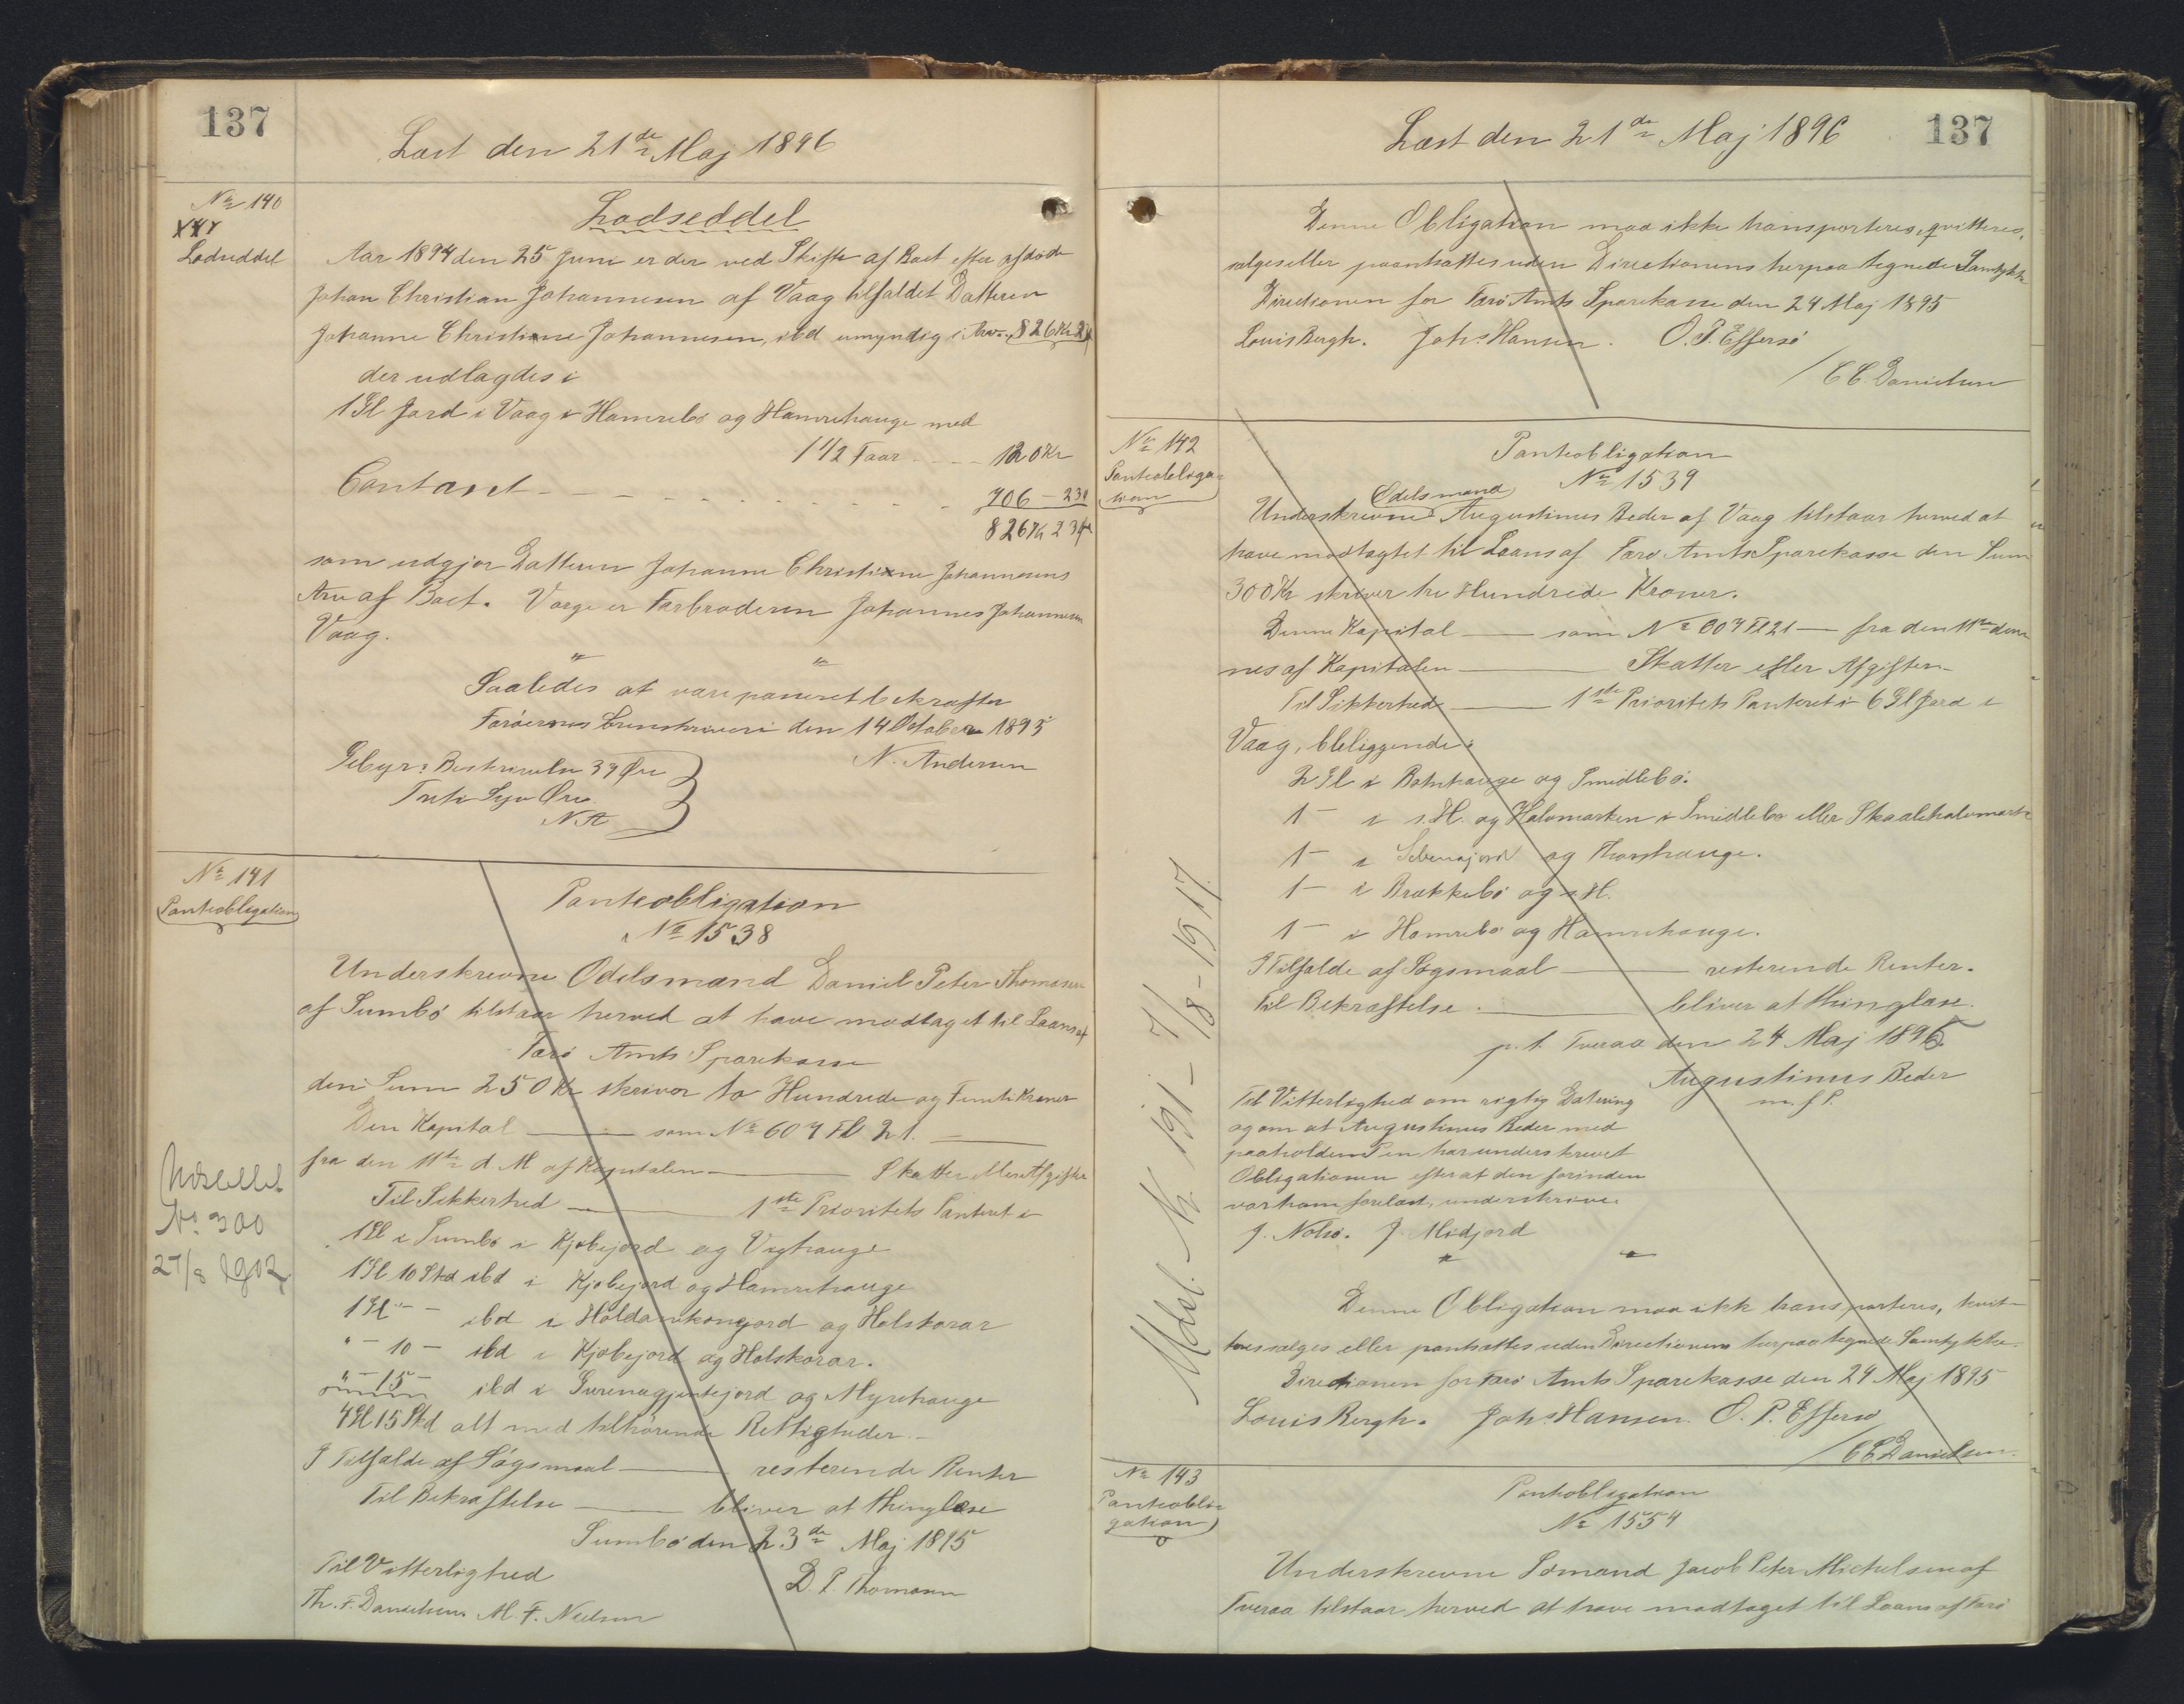 137
Læst den 21de Maj 1896
No 140
Lodseddel
Lodseddel
Aar 1894 den 25 Juni er der ved Skifte af Boet efter afdøde
Johan Christian Johannesen af Vaag tilfaldet Datteren
Johanne Christiane Johannesen, ibd umyndig i Arv: 826 Kr 23
der udlagdes i
1 Gl Jord i Vaag i Hamrebø og Hamrehauge med
1 1/2 Faar - - - 120 Kr
Contant - - - - - - - - - 706 - 23
826 Kr 23
som udgjør Datteren Johanne Christiane Johannesens
Arv af Boet. Værge er Farbroderen Johannes Johannesen
Vaag.
Saaledes at være passeret bekræfter
Færøernes Sorenskriveri den 14 October 1895
N. Andersen
Gebyr: Beskrivelse 37 Øre
Treti Syv Øre
N.A
No 141
Panteobligation
Panteobligation
No 1538
Underskrevne Odelsmand Daniel Peter Thomasen
af Sumbø tilstaar herved at have modtaget til Laans af
Færø Amts Sparekasse
den Sum 250 Kr skriver to Hundrede og Femti Kroner
Den Kapital — som No 607 Fl 21. —
fra den 11te d. M af Kapitalen — Skatter eller Afgifter
Til Sikkerhed — 1ste Prioritets Panteret i
1 Gl i Sumbø i Kjøbejord og Vighauge
1 Gl 10 Skd ibd i Kjøbejord og Hamrehauge
1 Gl " - ibd i Holdankongjord og Holskorar
" - 10 - ibd i Kjøbejord og Holskorar.
" - 15 - ibd i Gurenagjentejord og Myrehauge
4 Gl 15 Skd alt med tilhørende Rettigheder. -
I Tilfælde af Søgsmaal — resterende Renter
Til Bekræftelse — bliver at thinglæse
Sumbø den 23de Maj 1895
Til Vitterlighed
D. P. Thomasen
Th. F. Danielsen M. F. Nielsen
Udslettet
No 300
27/8 1902
Læst den 21de Maj 1896
137
Denne Obligation maa ikke transporteres, qvitteres,
sælges eller pantsættes uden Directionens herpaa tegnede Samtykke
Directionen for Færø Amts Sparekasse den 24 Maj 1895
Louis Bergh. Johs Hansen. O. P. Effersø
/ C C Danielsen
No 142
Panteobliga-
tion
Panteobligation
No 1539
Underskrevne Odelsmand Augustinus Beder af Vaag tilstaar herved at
have modtagtet til Laans af Færø Amts Sparekasse den Sum
300 Kr skriver tre Hundrede Kroner.
Denne Kapital — som No 607 Fl 21 — fra den 11te den-
nes af Kapitalen — Skatter eller Afgifter -
Til Sikkerhed — 1ste Prioritets Panteret i 6 Gl Jord i
Vaag, beliggende:
2 Gl i Botnhauge og Smidlebø.
1 - i s. H. og Halvmarken i Smidlebø eller Skaalehalvmark
1 - i og Thorshauge.
1 - i Brækkebø og s H.
1 - i Hamrebø og Hamrehauge.
I Tilfælde af Søgsmaal — resterende Renter.
Til Bekræftelse — bliver at thinglæse.
p. t. Tveraa den 24 Maj 1895
Augustinus Beder
m. f. P.
Til Vitterlighed om rigtig Datering
og om at Augustinus Beder med
paaholden Pen har underskrevet
Obligationen efter at den forinden
var ham forelæst, underskrive.
J. Nolsø. J. Midjord
Denne Obligation maa ikk transporteres, kvit-
teres sælges eller pantsættes uden Directionens herpaa tegnede Samtykke.
Directionen for Færø Amts Sparekasse den 24 Maj 1895
Louis Bergh. Johs Hansen. O. P. Effersø
/ C C Danielsen.
Udsl. No 191 - 7/8 - 1917.
No 143
Panteobli-
gation
Panteobligation
No 1554
Underskrevne Sømand Jacob Peter Michelsen af
Tveraa tilstaar herved at have modtaget til Laans af Færø